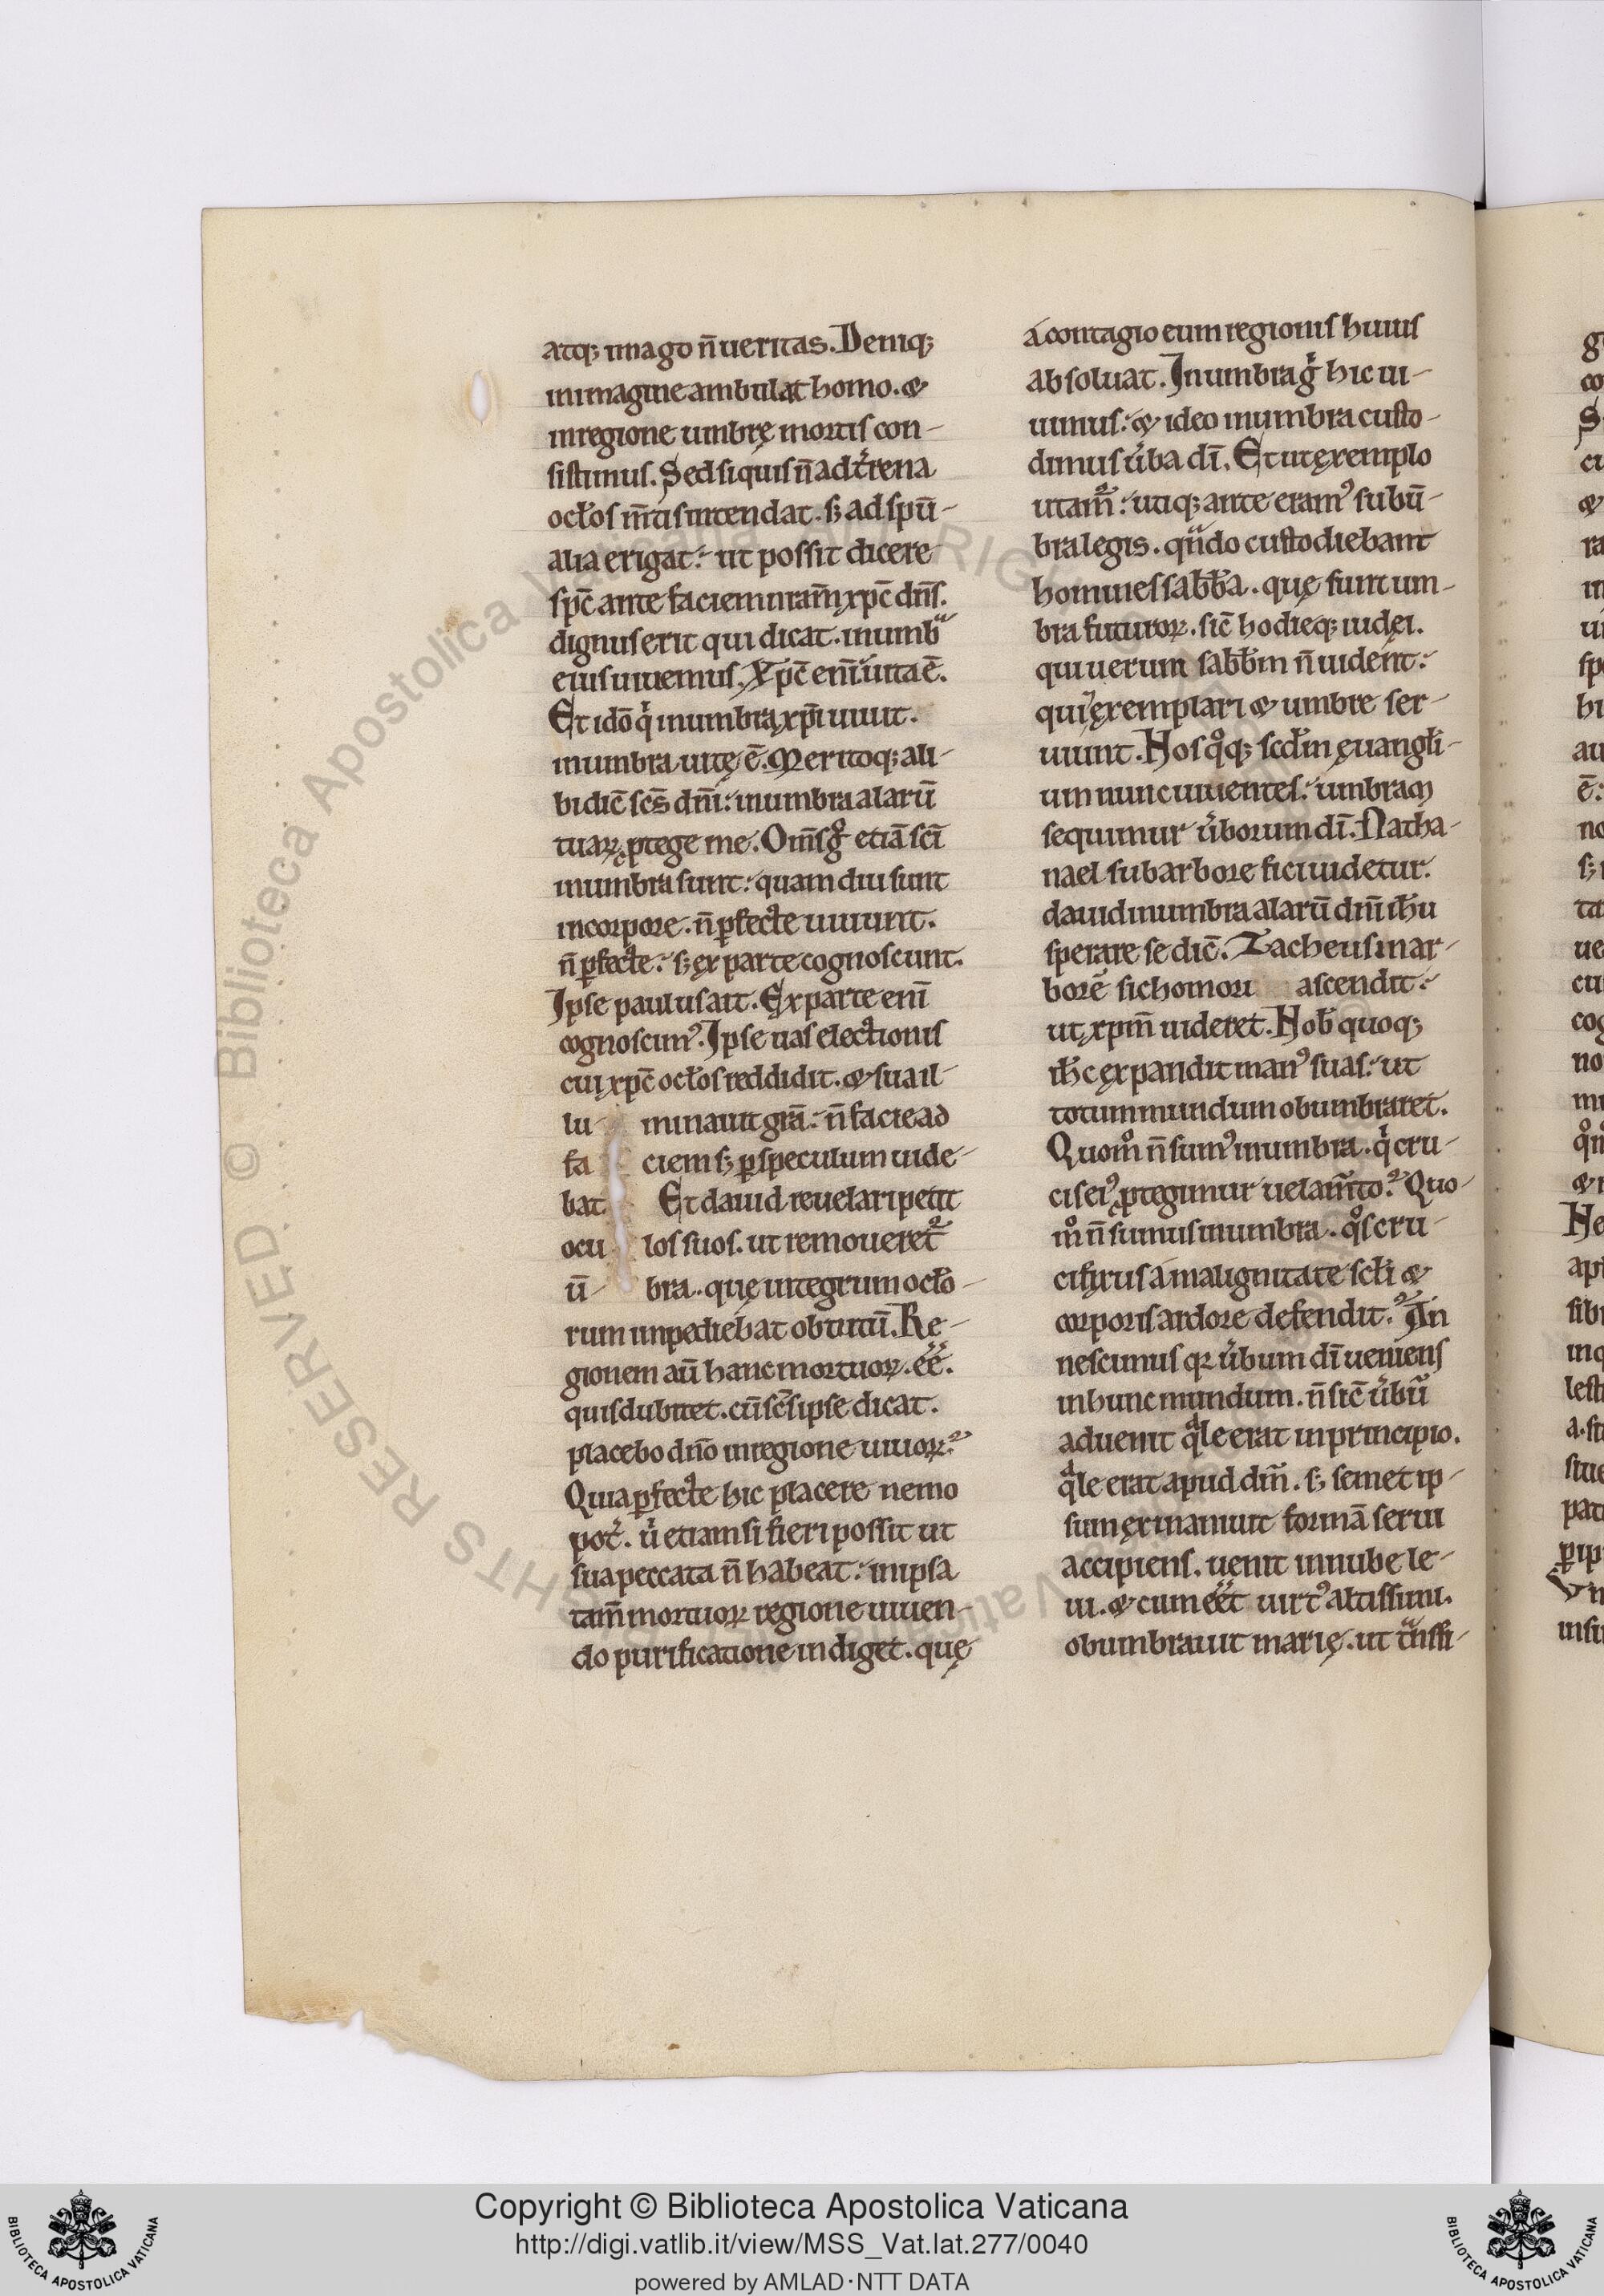 atq; imago n̄ ueritas. Deniq;
in imagine ambulat homo. &
in regione umbrę mortis con-
sistimus. Sed siquis n̄ ad t̓rena
ocłos m̄tis intendat. s; ad spū-
alia erigat: ut possit dicere
spc̄ ante faciem nrām xpc̄ dn̄s.
dignus erit qui dicat. in umbᵃ
eius uiuemus. Xpc̄ enī uita ē.
Et idō qⁱ in umbra xpī uiuit.
in umbra uitę ē. Meritoq; ali-
bi dic̄ sc̄s dn̄i: in umbra alarū
tuaꝝ ꝓtege me. Om̄s gͦ etiā sc̄i
in umbra sunt: quam diu sunt
in corpore. n̄ ꝑfecte uiuunt.
n̄ ꝑfecte: s; ex parte cognoscunt.
Ipse paulus ait. Ex parte enī
cognoscimꝰ. Ipse uas electionis
cui xpc̄ ocłos reddidit. & sua il-
lu- minauit grā: n̄ facie ad
fa ciem s; ꝑ speculum uide-
bat Et dauid reuelari petit
ocu los suos. ut remoueret̃
ū- bra. quę integrum ocło-
rum impediebat obtutū. Re-
gionem aū hanc mortuoꝝ. eē̄.
quis dubitet. cū sc̄s ipse dicat.
placebo dn̄o in regione uiuoꝝ?
Quia ꝑfecte hic placere nemo
pot̓. ū̓ etiam si fieri possit ut
sua peccata n̄ habeat: in ipsa
tam̄ mortuoꝝ regione uiuen-
do purificatione indiget. quę
a contagio eum regionis huius
absoluat. In umbra gͥ hic ui-
uimus: & ideo in umbra custo-
dimus ū̓ba dī. Et ut exemplo
utam̃: utiq; ante eramꝰ sub ū-
bra legis. qn̄do custodiebant
homines sabb̄a. quę sunt um-
bra futuroꝝ. sic̄ hodieq; iudęi.
qui uerum sabb̄m n̄ uident:
qui exemplari & umbre ser-
uiunt. Nos qͦq; scd̄m ęuangłi-
um nunc uiuentes: umbram
sequimur ū̓borum dī. Natha-
nael sub arbore fici uidetur.
dauid in umbra alarū dn̄i ih̄u
sperare se dic̄. Zacheus in ar-
bore sichomori ascendit:
ut xpm̄ uideret. Nob̄ quoq;
ih̄c expandit manꝰ suas: ut
totum mundum obumbraret.
Quom̊ n̄ sumꝰ in umbra. qⁱ cru-
cis eiꝰ ꝓtegimur uelam̄to? Quo-
m̊ n̄ sumus in umbra. qͦs cru-
cifixus a malignitate scłi &
corporis ardore defendit? An
nescimus qꝛ ū̓bum dī ueniens
in hunc mundum. n̄ sic̄ ū̓bū
aduenit qᵃle erat in principio.
qᵃle erat apud dm̄. s; semet ip-
sum exinaniuit formā serui
accipiens. uenit in nube le-
ui. & cum eēt uirtꝰ altissimi.
obumbrauit marię. ut tᵃnsfi-
Copyright © Biblioteca Apostolica Vaticana
http://digi.vatlib.it/view/MSS_Vat.lat.277/0040
powered by AMLAD·NTT DATA